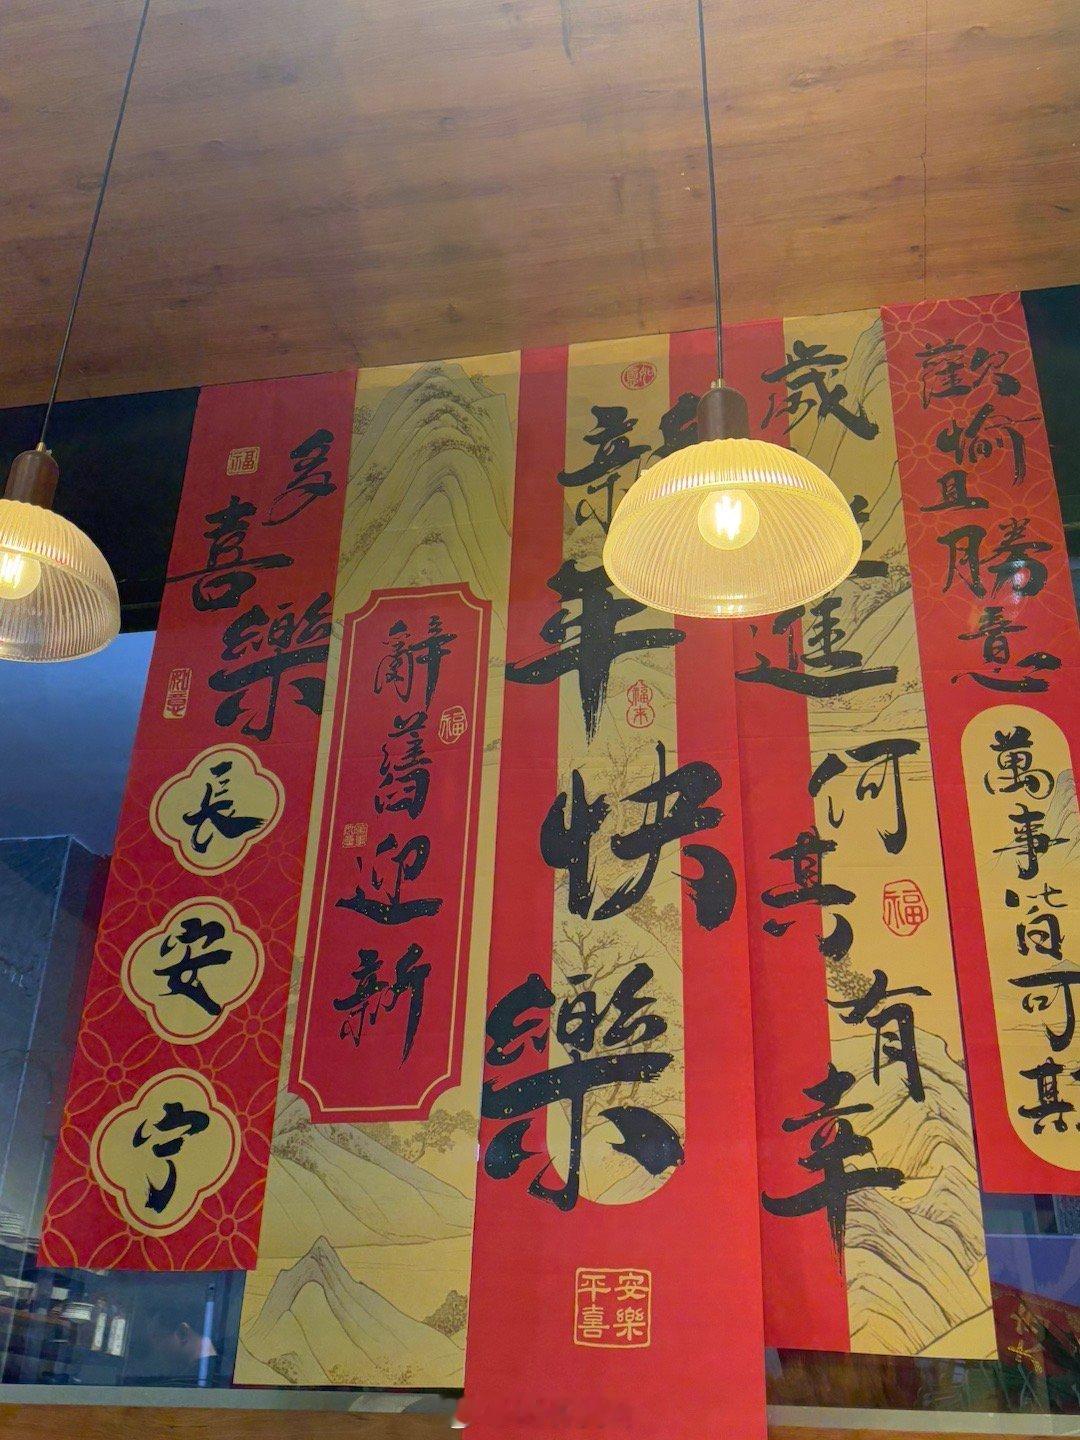 福
多喜樂
如意
長安宁
辭舊迎新
福
如意
新年快樂
福来
平安
喜樂
歲進
何其有幸
福
歡愉且勝意
萬事皆可期